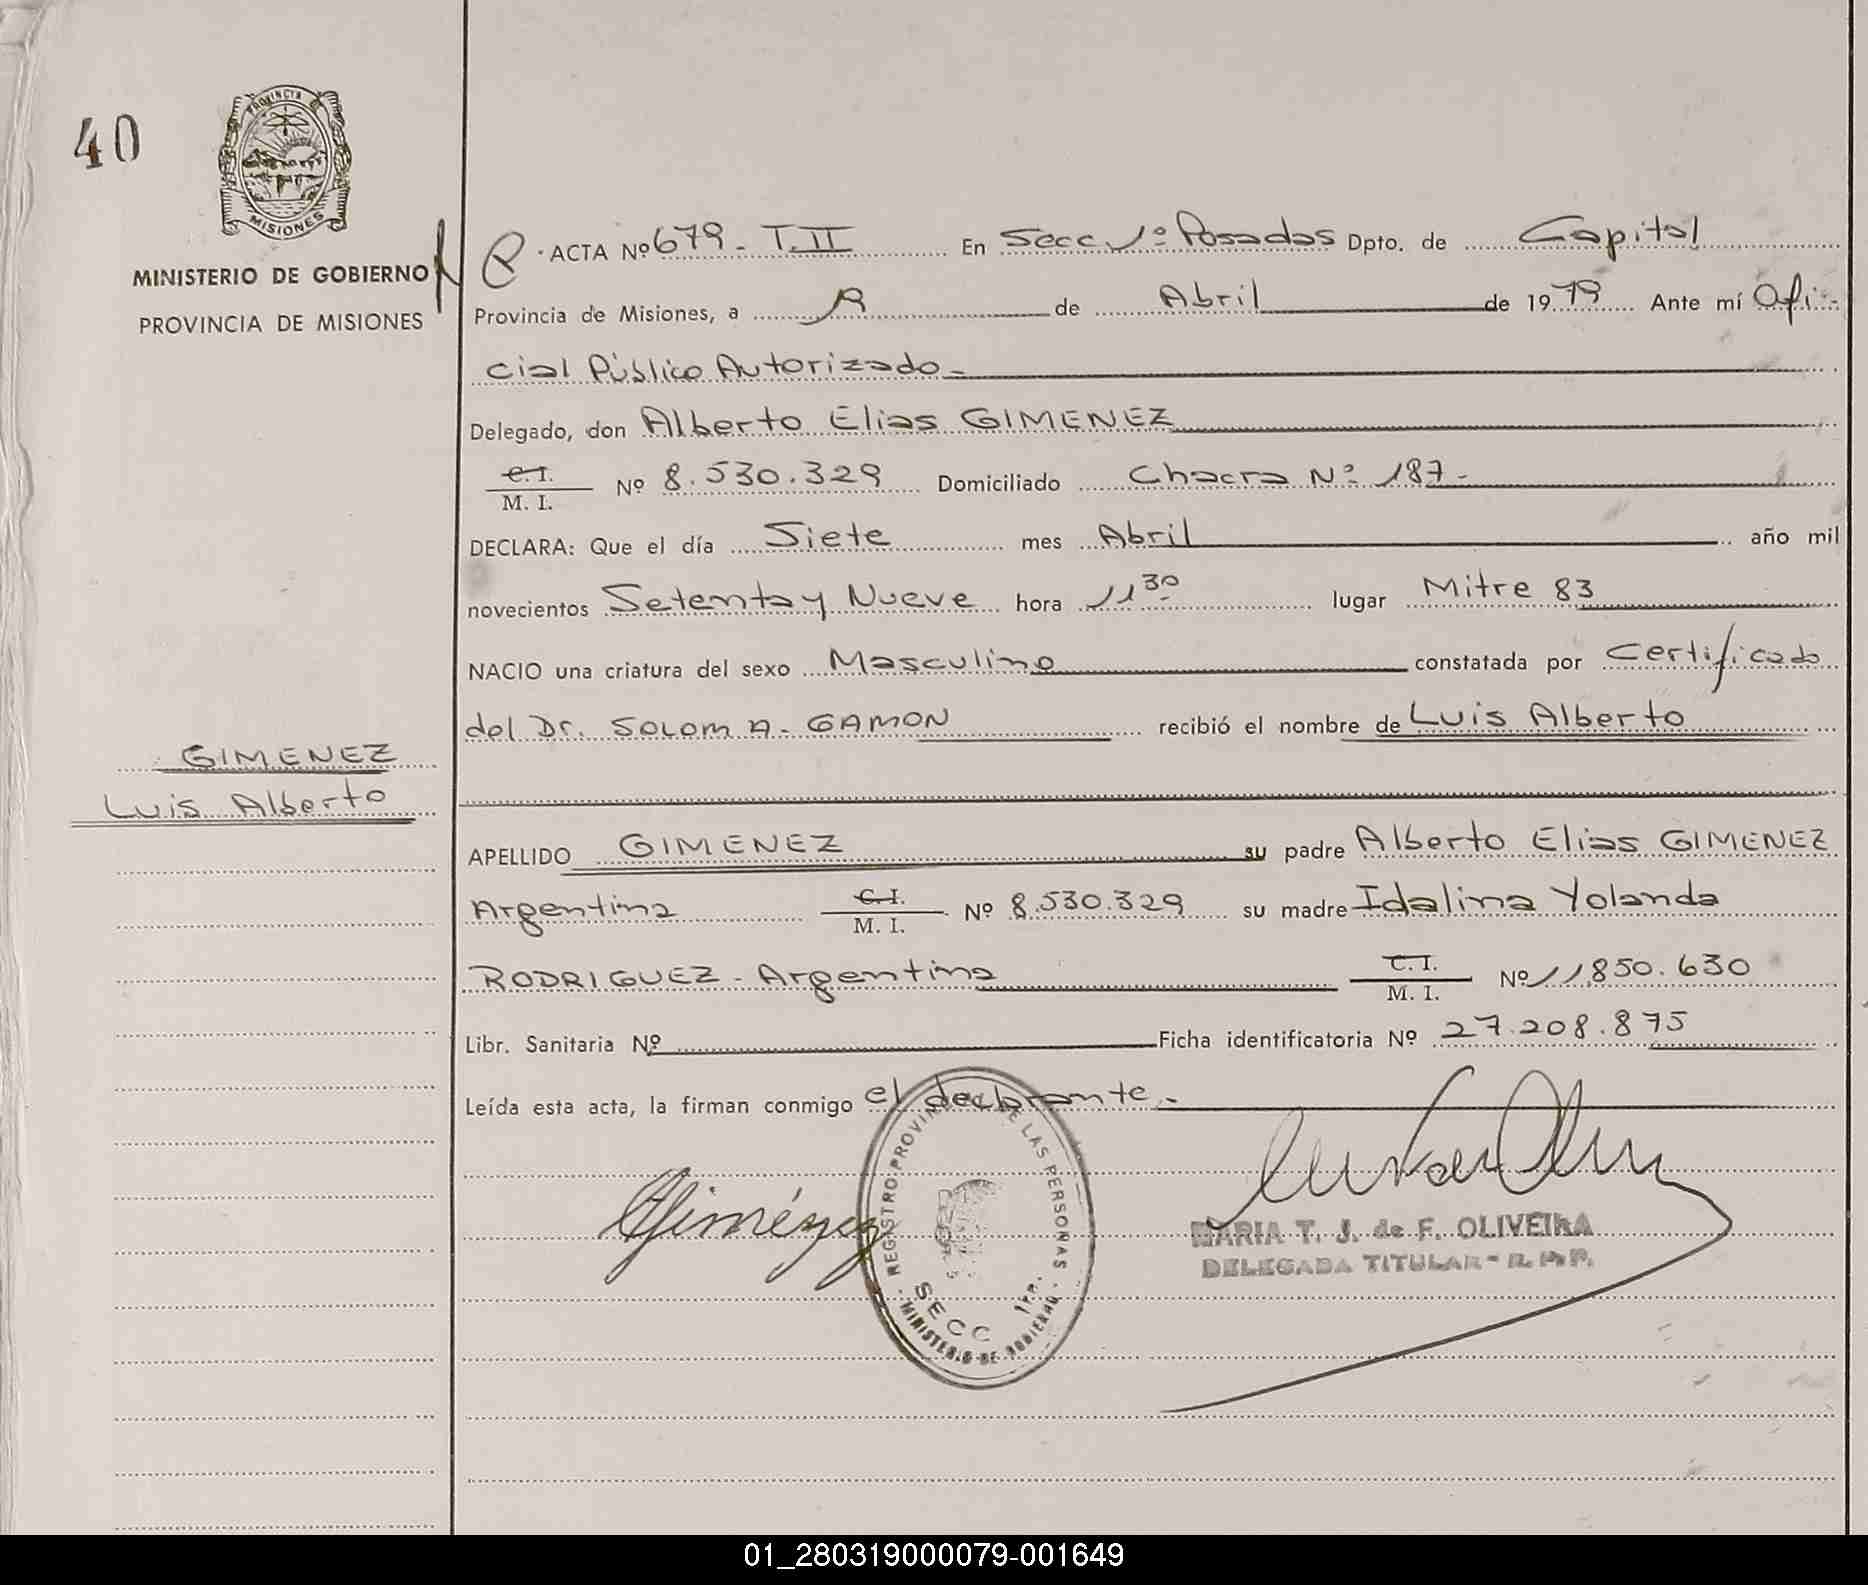 40
PROVINCIA DE
MISIONES
MINISTERIO DE GOBIERNO
PROVINCIA DE MISIONES
ACTA Nº 679 - T. II En Secc 1º Posadas Dpto. de Capital
Provincia de Misiones, a de Abril de 1979 Ante mí Ofi-
cial Público Autorizado-
Delegado, don Alberto Elias GIMENEZ
C. I.
M. I. Nº 8.530.329 Domiciliado Chacra Nº 187-
DECLARA: Que el día Siete mes Abril año mil
novecientos Setenta y Nueve hora 11 30 lugar Mitre 83
NACIO una criatura del sexo Masculino constatada por Certificado
del Dr. SOLOM A. GAMON recibió el nombre de Luis Alberto
GIMENEZ
Luis Alberto
APELLIDO GIMENEZ su padre Alberto Elias GIMENEZ
Argentina C. I. M. I. Nº 8.530.329 su madre Idalina Yolanda
RODRIGUEZ - Argentina C. I. M. I. Nº 11.850.630
Libr. Sanitaria Nº Ficha identificatoria Nº 27.208.875
Leída esta acta, la firman conmigo el declarante.-
Giménez
REGISTRO PROVINCIAL DE LAS PERSONAS
SECC 1ra.
MINISTERIO DE GOBIERNO
MARIA T. J. de F. OLIVEIRA
DELEGADA TITULAR - R. P. P.
01_280319000079-001649